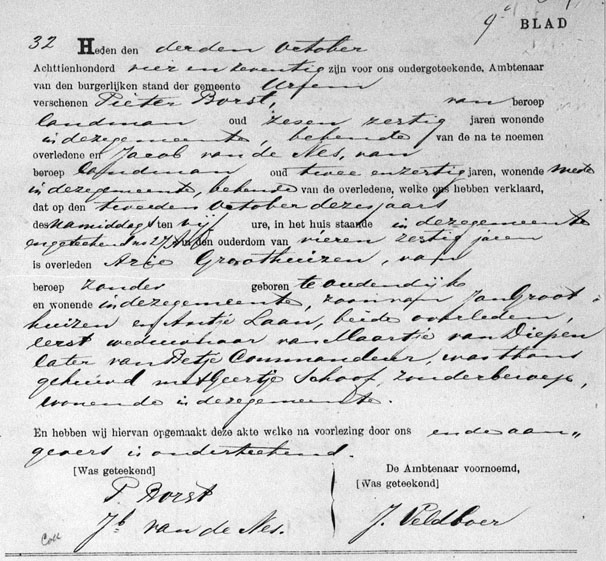 9e BLAD
32 Heden den derden october
Achttienhonderd vier en zeventig zijn voor ons ondergeteekende, Ambtenaar
van den burgerlijken stand der gemeente Ursem
verschenen Pieter Borst, van beroep
landman oud zesen zertig jaren wonende
in dezegemeente, bekende van de na te noemen
overledene en Jacob van de Nes, van
beroep landman oud twee enzertig jaren, wonende mede
in dezegemeente, bekende van de overledene, welke ons hebben verklaard,
dat op den tweeden october dezesjaars
des namiddags ten vijf ure, in het huis staande in dezegemeente
in den ouderdom van vieren zertig jaren
is overleden Arie Groothuizen, van
beroep zonder geboren te oudendijk
en wonende in dezegemeente, zoon van Jan Groot
huizen en Antje Laan, beide overleden,
eerst weduwnaar van Maartje van Diepen
later van Betje Commandeur, was thans
gehuwd met Geertje Schoof, zonder beroep,
wonende in dezegemeente.
En hebben wij hiervan opgemaakt deze akte welke na voorlezing door ons en de aan„
gevers is onderteekend.
[Was geteekend] De Ambtenaar voornoemd,
[Was geteekend]
P. Borst
Jb van de Nes. J. Veldboer